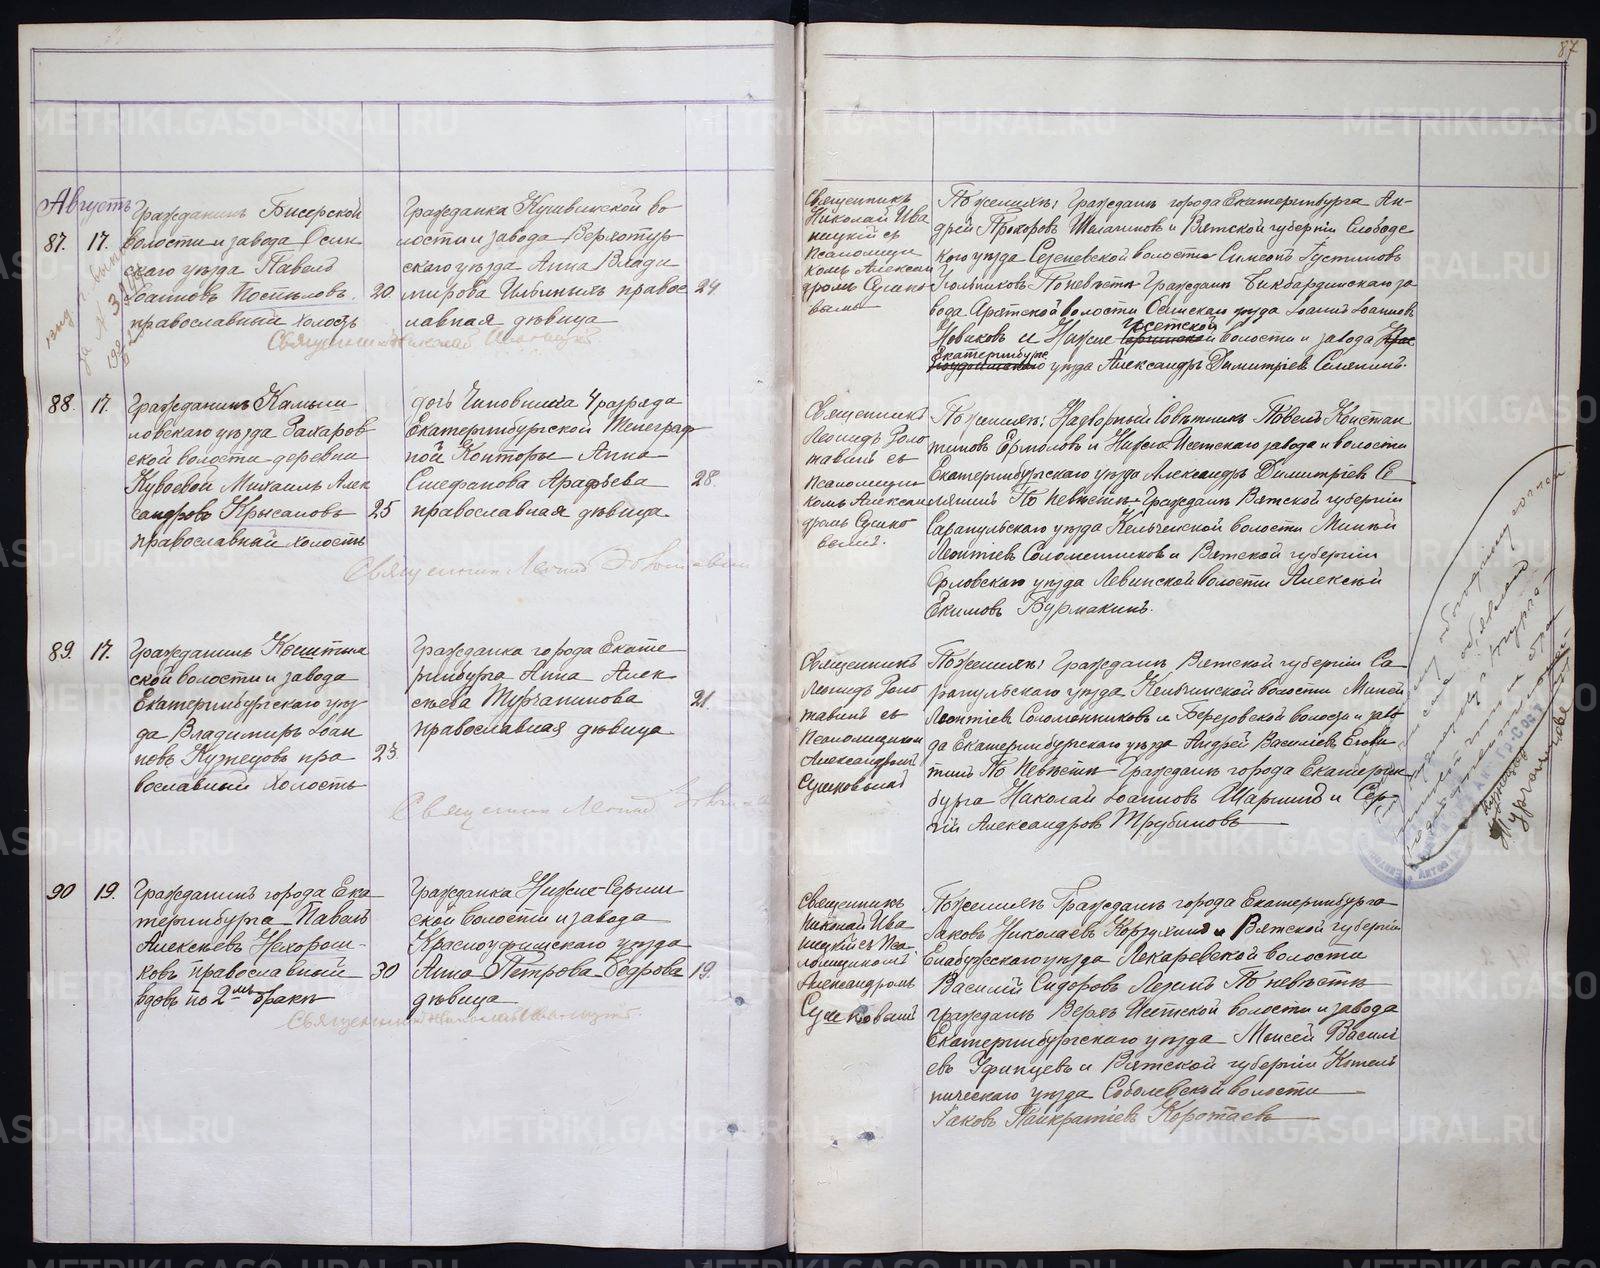 87
Августъ
87. 17. Гражданинъ Бисерской
волости и завода Осин
скаго уѣзда Павелъ
Іоанновъ Поспѣловъ. 20
православный холостъ
Гражданка Кушвинской во
лости и завода Верхотур
скаго уѣзда Анна Влади
мирова правос 24.
лавная дѣвица
Священникъ Николай Иваницкій
Священникъ
Николай Ива
ницкій съ
псаломщи
комъ Алексан
дромъ Сушко
вымъ
По женихѣ: Гражданъ города Екатеринбурга Ан-
дрей Прохоровъ и Вятской губерніи Слободс
кого уѣзда волости Симеонъ Іустиновъ
По невѣстѣ Гражданъ Бикбардинскаго за
вода Аряжской волости Осинскаго уѣзда Іоаннъ Іоанновъ
Новиковъ и Нижне Исетской волости и завода
Екатеринбург
уѣзда Александръ Димитріевъ Селянинъ.
88. 17. Гражданинъ Камыш
ловскаго уѣзда Захаров
ской волости деревни
Михаилъ Алек
сандровъ Крысановъ 25
православный холостъ
дочь Чиновника 4 разряда
Екатеринбургской Телеграф
ной Конторы Анна
Стефанова Арафьева 28.
православная дѣвица
Священникъ Леонидъ
Священникъ
Леонидъ Золо
тавинъ съ
псаломщи
комъ Алексан
дромъ Сушко
вымъ.
По женихѣ: Надворный Совѣтникъ Павелъ Констан
тиновъ Ермоловъ и Нижне-Исетскаго завода и волости
Екатеринбургскаго уѣзда Александръ Димитріевъ Се
лянинъ По невѣстѣ Гражданъ Вятской губерніи
Сарапульскаго уѣзда Кельчинской волости Миней
Леонтіевъ Соломенниковъ и Вятской губерніи
Орловскаго уѣзда Левинской волости Алексѣй
Екимовъ Бурмакинъ.
89. 17. Гражданинъ Кыштым
ской волости и завода
Екатеринбургскаго уѣз
да Владимиръ Іоан
новъ Кузнецовъ пра 23.
вославный холостъ
Гражданка города Екате
ринбурга Анна Алек
сѣева Турчанинова 21.
православная дѣвица
Священникъ Леонидъ
Священникъ
Леонидъ Золо
тавинъ съ
Псаломщикомъ
Александромъ
Сушковымъ
По женихѣ: Гражданъ Вятской губерніи Са
рапульскаго уѣзда Кельчинской волости Миней
Леонтіевъ Соломенниковъ и Березовской волости и заво
да Екатеринбургскаго уѣзда Андрей Василіевъ
По невѣстѣ Гражданъ города Екатерин
бурга Николай Іоанновъ и Сер
гій Александровъ Трубиновъ
90 19. Гражданинъ города Ека
теринбурга Павелъ
Алексѣевъ Нахорош-
ковъ православный 30
вдовъ по 2мъ бракѣ
Гражданка Нижне-Сергин
ской волости и завода
Красноуфимскаго уѣзда
Анна Петрова Бодрова 19.
дѣвица
Священникъ Николай Иваницкій
Священникъ
Николай Ива
ницкій съ Пса
ломщикомъ
Александромъ
Сушковымъ
По женихѣ Гражданъ города Екатеринбурга
Іаковъ Николаевъ Корзухинъ и Вятской губерніи
Елабужскаго уѣзда Лекаревской волости
Василій Сидоровъ По невѣстѣ
гражданъ Верхъ Исетской волости и завода
Екатеринбургскаго уѣзда Моисей Василі
евъ Уфинцевъ и Вятской губерніи Котель
ническаго уѣзда Соболевской волости
Іаковъ Панкратіевъ Коротаевъ
METRIKI.GASO-URAL.RU